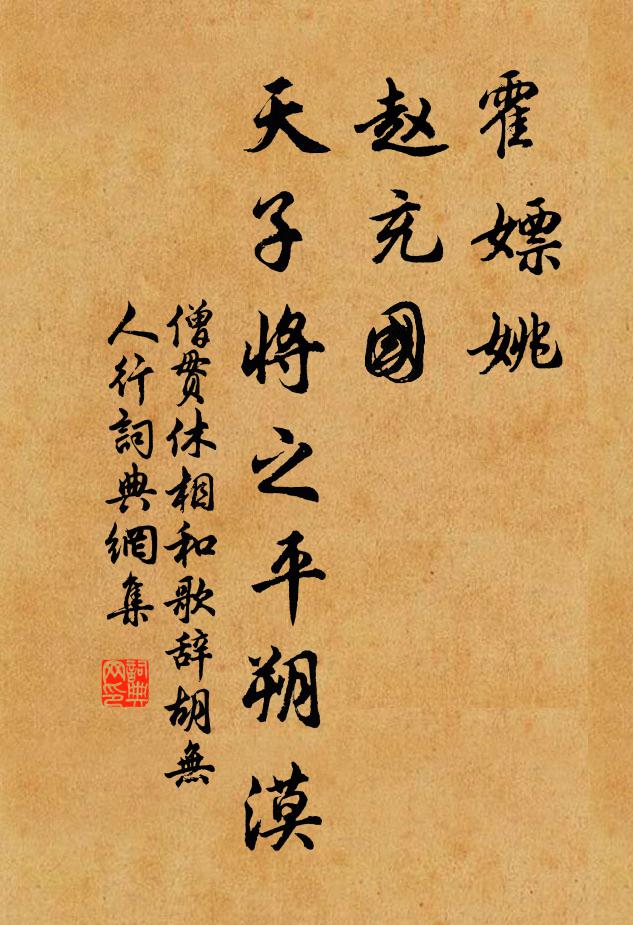 霍嫖姚
赵充國
天子將之平朔漠
僧贯休相和歌辞胡無
人行詞典網集
詞典网印